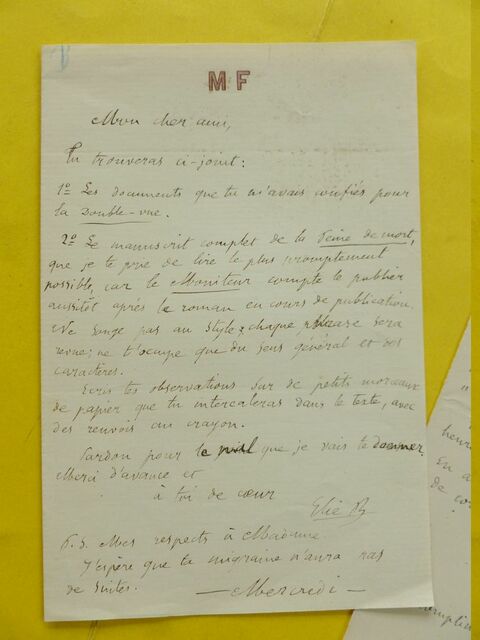 MF
Mon cher ami,
Tu trouveras ci-joint:
1º Les documents que tu m'avais confiés pour
la Double-vue.
2º Le manuscrit complet de la Peine de mort,
que je te prie de lire le plus promptement
possible, car le Moniteur compte le publier
aussitôt après le roman en cours de publication.
Ne songe pas au style; chaque phrase sera
revue; ne t'occupe que du sens général et des
caractères.
Ecris tes observations sur de petits morceaux
de papier que tu intercaleras dans le texte, avec
des renvois au crayon.
Pardon pour le mal que je vais te donner,
Merci d'avance et
à toi de cœur
Elie B
P.S. Mes respects à Madame.
J'espère que ta migraine n'aura pas
de suites.
— Mercredi —
heure
En a
de co